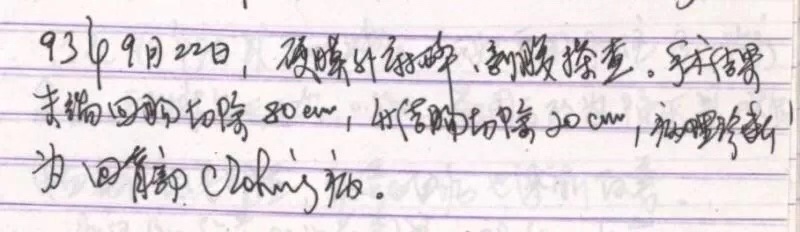 93年9月22日，硬膜外麻醉、剖腹探查。手术结果
末端回肠切除80cm，升结肠切除20cm，病理诊断
为回盲部Crohn's病。